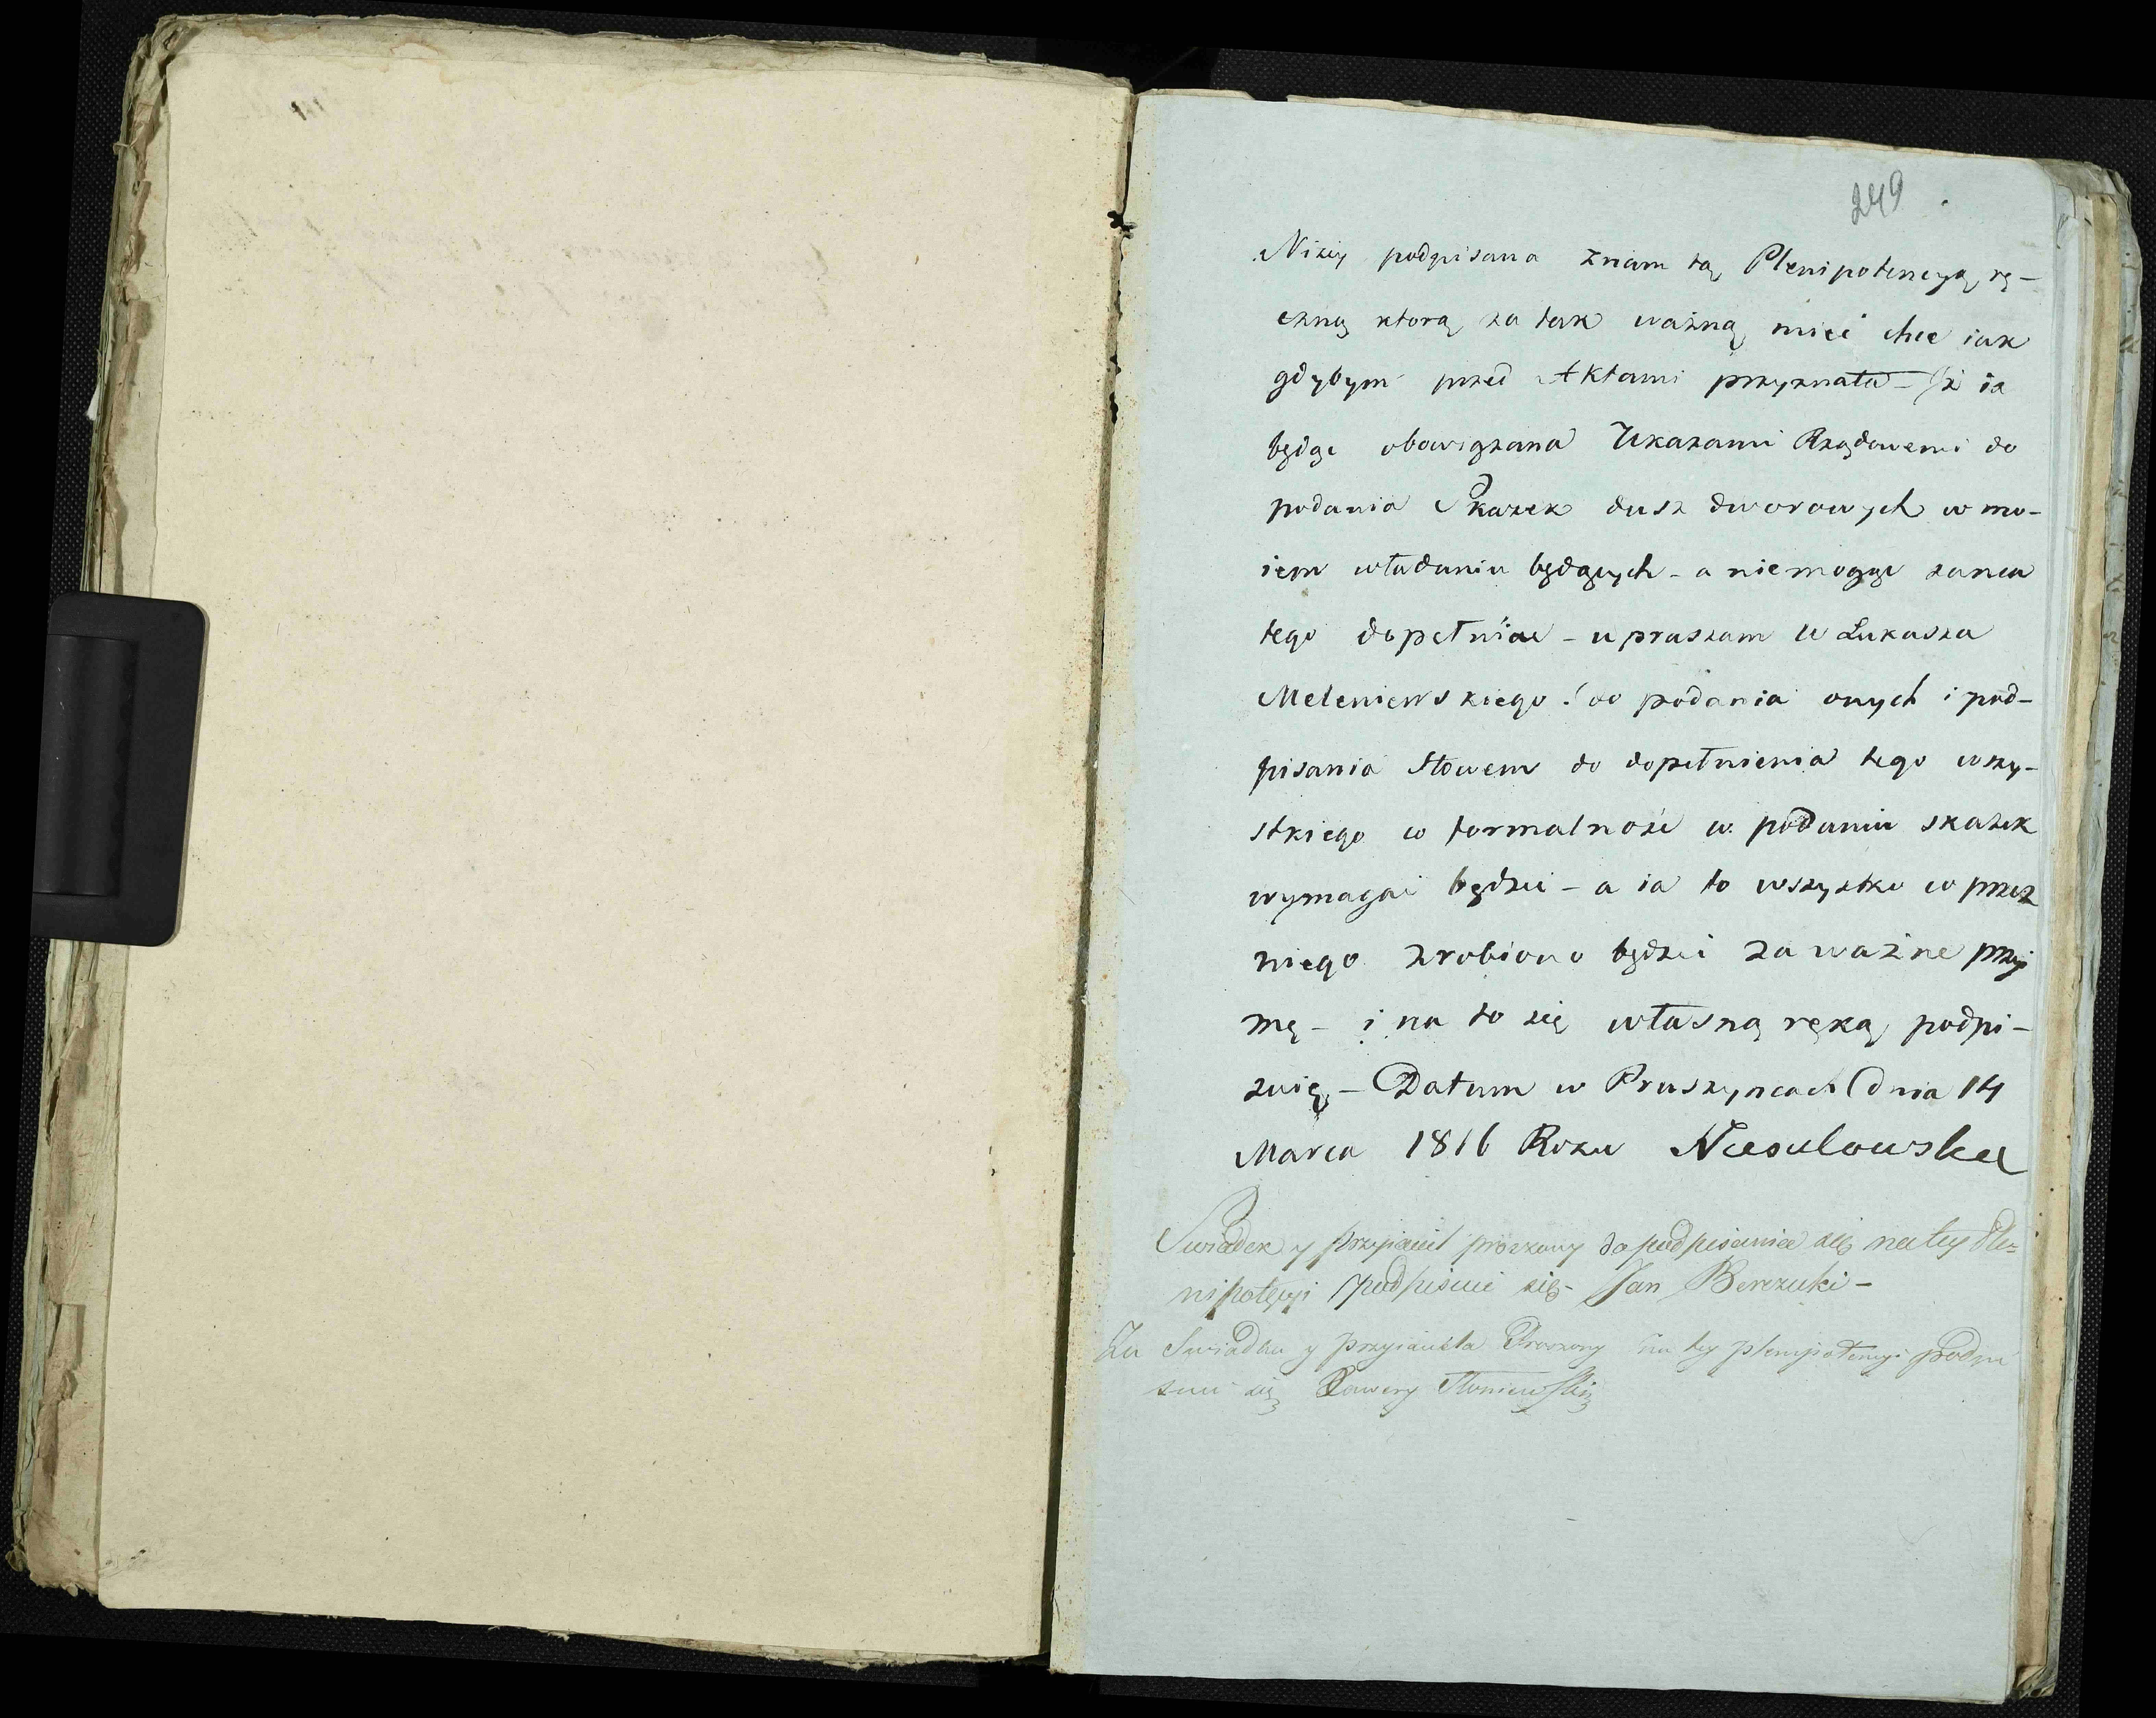 249
Niżey podpisana znam tą Plenipotencyą rę-
czną ktorą za tak ważną mieć chcę iak
gdybym przed Aktami przyznała - Jż ia
będąc obowiązana Ukazami Rządowemi do
podania Skazek dusz dworowych w mo-
iem władaniu będących - a niemogąc sama
tego dopełniać - upraszam W Łukasza
Meleniewskiego do podania onych i pod-
pisania słowem do dopełnienia tego wszy-
stkiego co formalność w podaniu skazek
wymagać będzie - a ia to wszystko co przez
niego zrobiono będzie za ważne przyj
mę - i na to się własną ręką podpi-
suię - Datum w Pruszyncach dnia 14
Marca 1816 Roku Niesulowska
Swiadek y przyiaciel proszony do podpisania się na tey Ple=
nipotęcyi podpisuie się - Jan Berezucki -
Za Swiadka y przyiaciela Proszony na tey plenipotencyi podpi
suie się Xawery